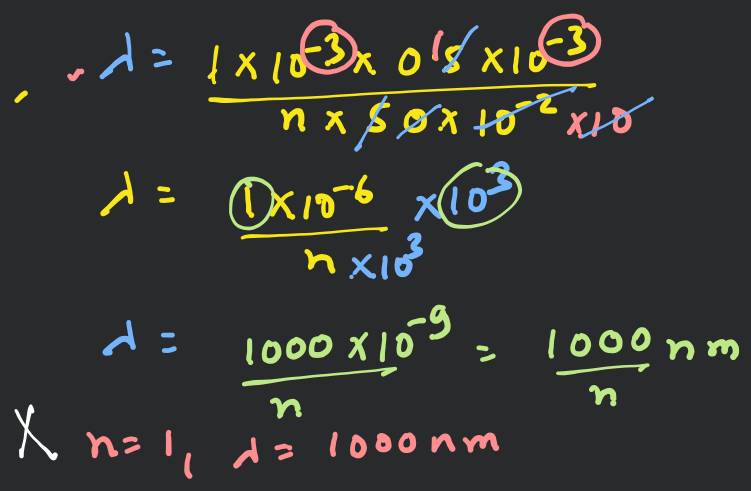 λ = 1 × 10^-3 × 0.5 × 10^-3 / n × 50 × 10^-2 × 10
λ = 1 × 10^-6 × 10^3 / n × 10^3
λ = 1000 × 10^-9 / n = 1000 / n nm
X n = 1, λ = 1000 nm